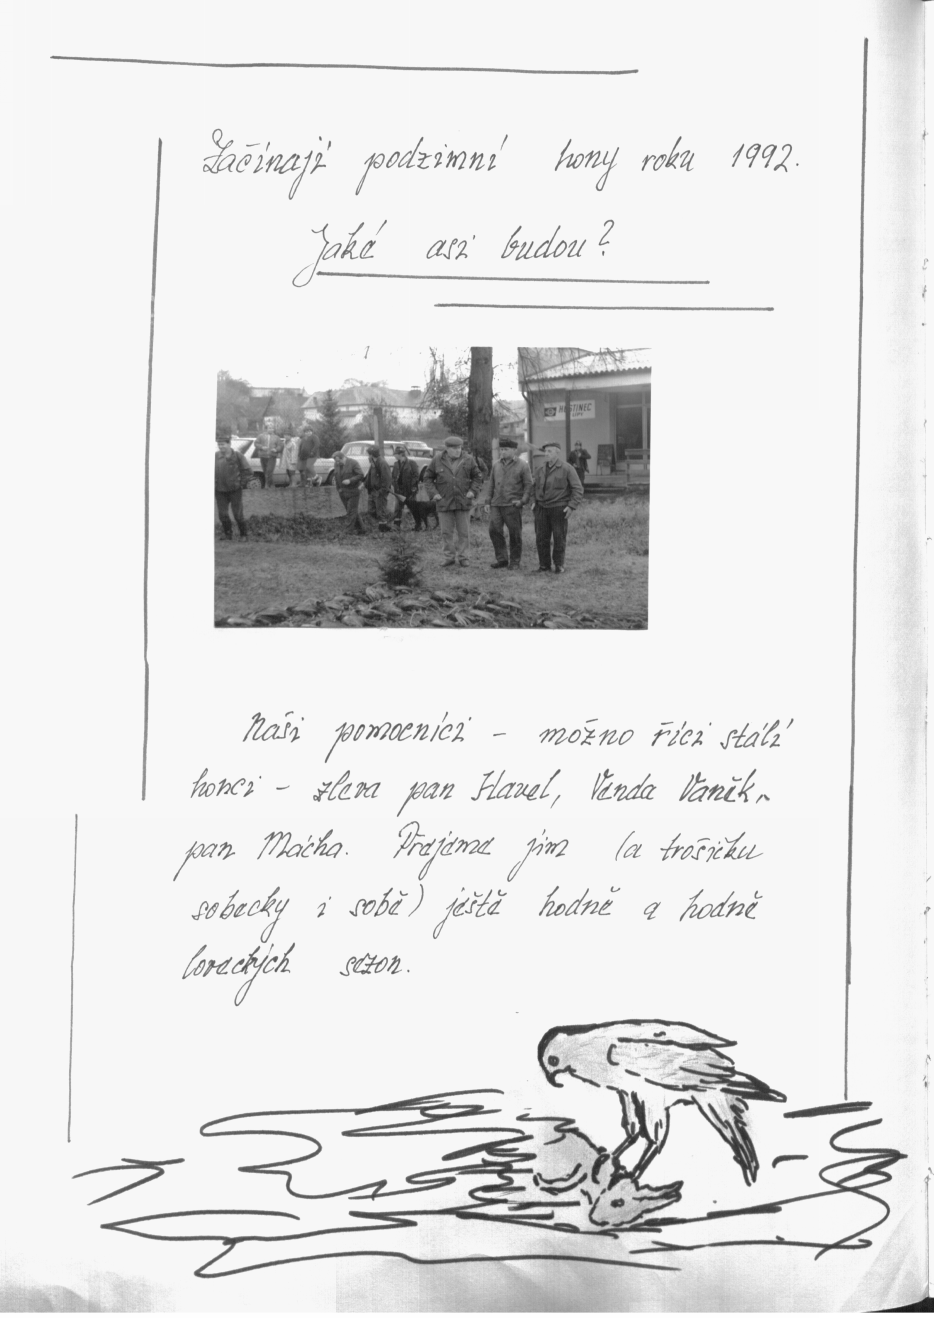 Začínají podzimní hony roku 1992.
Jaké asi budou?
HOSTINEC
Naši pomocníci - možno říci stálí
honci - zleva pan Havel, Venda Vaněk,
pan Mácha. Přejeme jim (a trošičku
sobecky i sobě) ještě hodně a hodně
loveckých sezon.